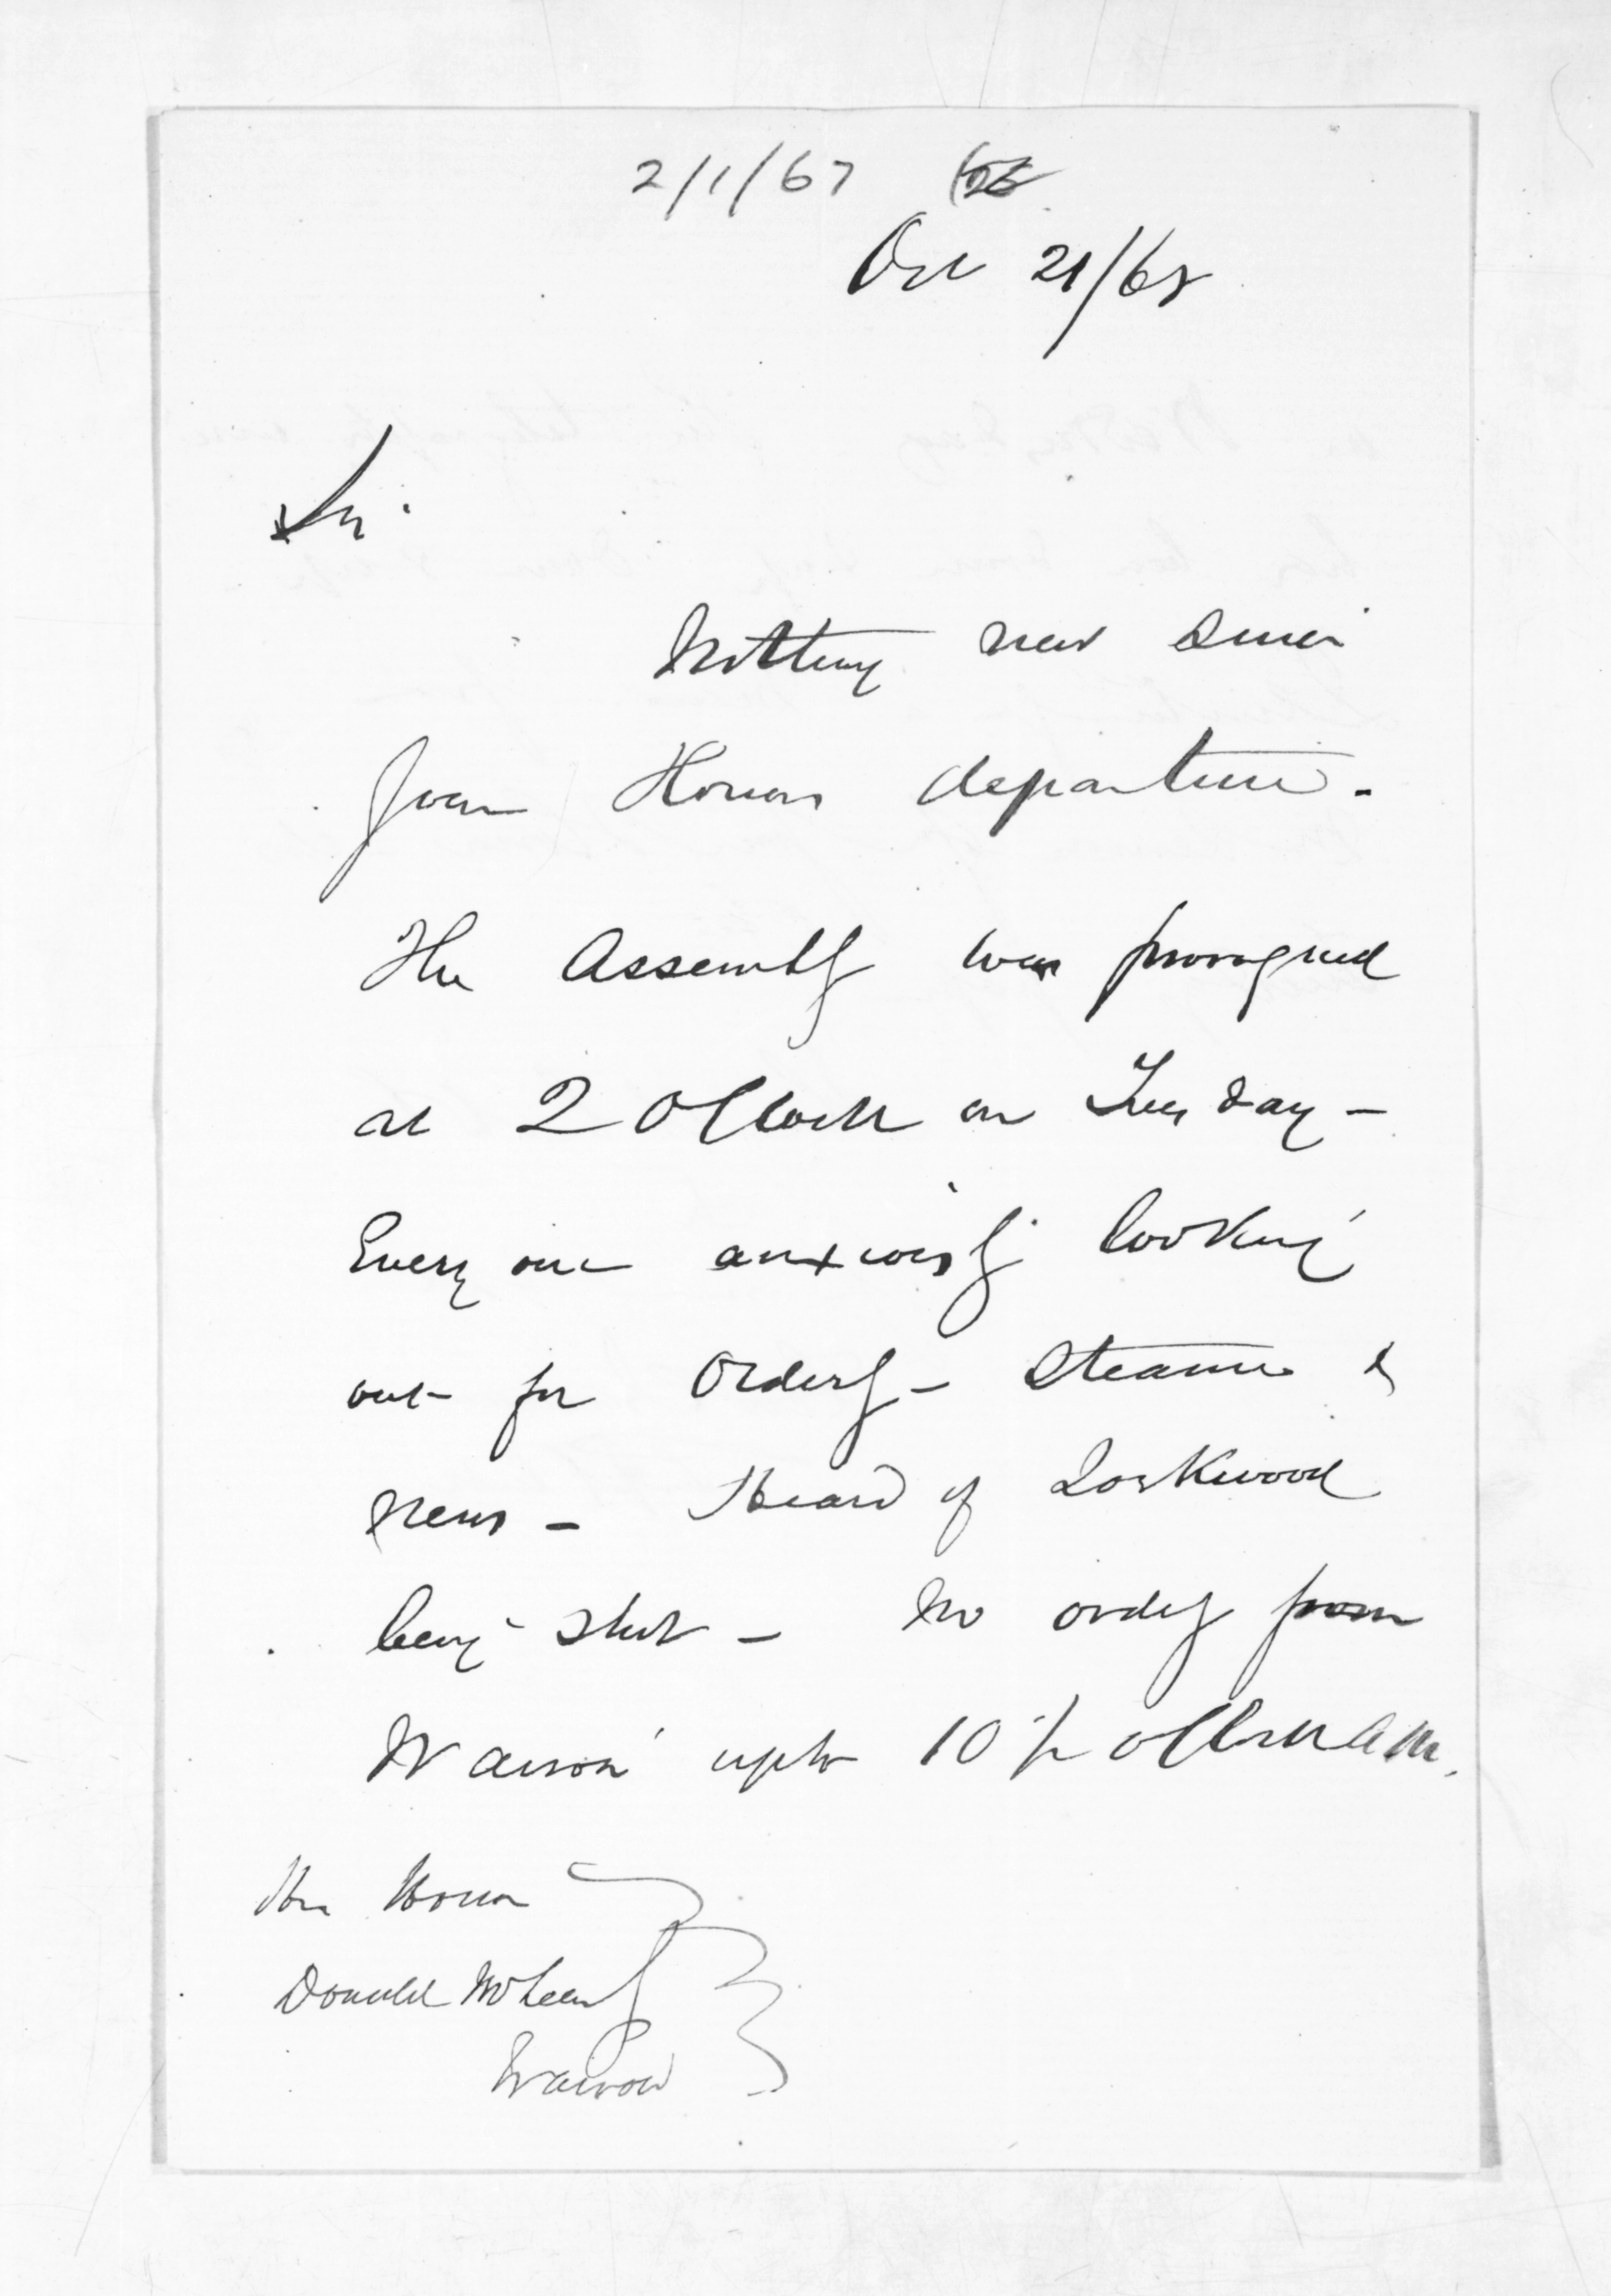 2/1/67
Oct 21/68
Sir
Nothing new since
Your Honors departure.
The Assembly was prorogued
at 2 OClock on Tuesday -
Every one anxiously looking
out for Orderly - Steamer &
News - Heard of Lockwood
being shot - No orderly from
Wairoa up to 10 ½ oClock AM.
His Honor
Donald McLean
Wairoa